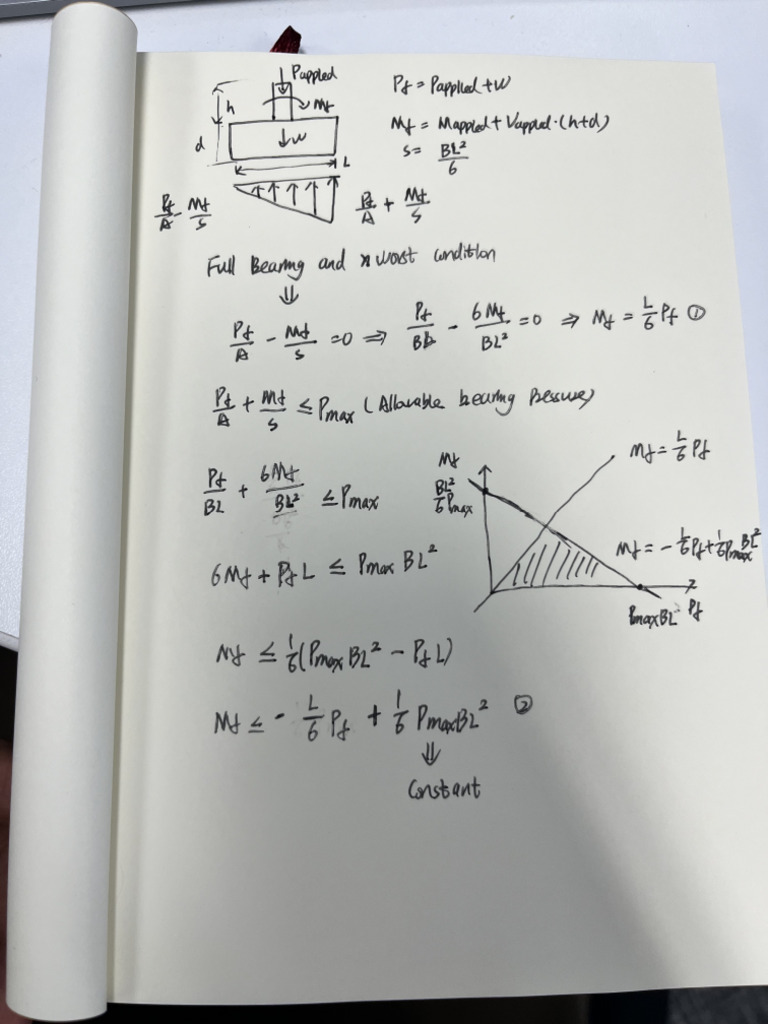 Pappled
h
Mf
d
↓W
L
Pf = Pappled + W
Mf = Mappled + Vappled·(h+d)
S = BL²/6
Pf/A - Mf/S
Pf/A + Mf/S
Full Bearing and worst condition
⇓
Pf/A - Mf/S = 0 ⇒ Pf/BL - 6Mf/BL² = 0 ⇒ Mf = L/6 Pf ①
Pf/A + Mf/S ≤ Pmax (Allowable bearing Pressure)
Pf/BL + 6Mf/BL² ≤ Pmax
6Mf + Pf L ≤ Pmax BL²
Mf ≤ 1/6 (Pmax BL² - Pf L)
Mf ≤ - L/6 Pf + 1/6 Pmax BL² ②
⇓
Constant
Mf
BL²/6 Pmax
Mf = L/6 Pf
Mf = - L/6 Pf + 1/6 Pmax BL²
Pmax BL
Pf